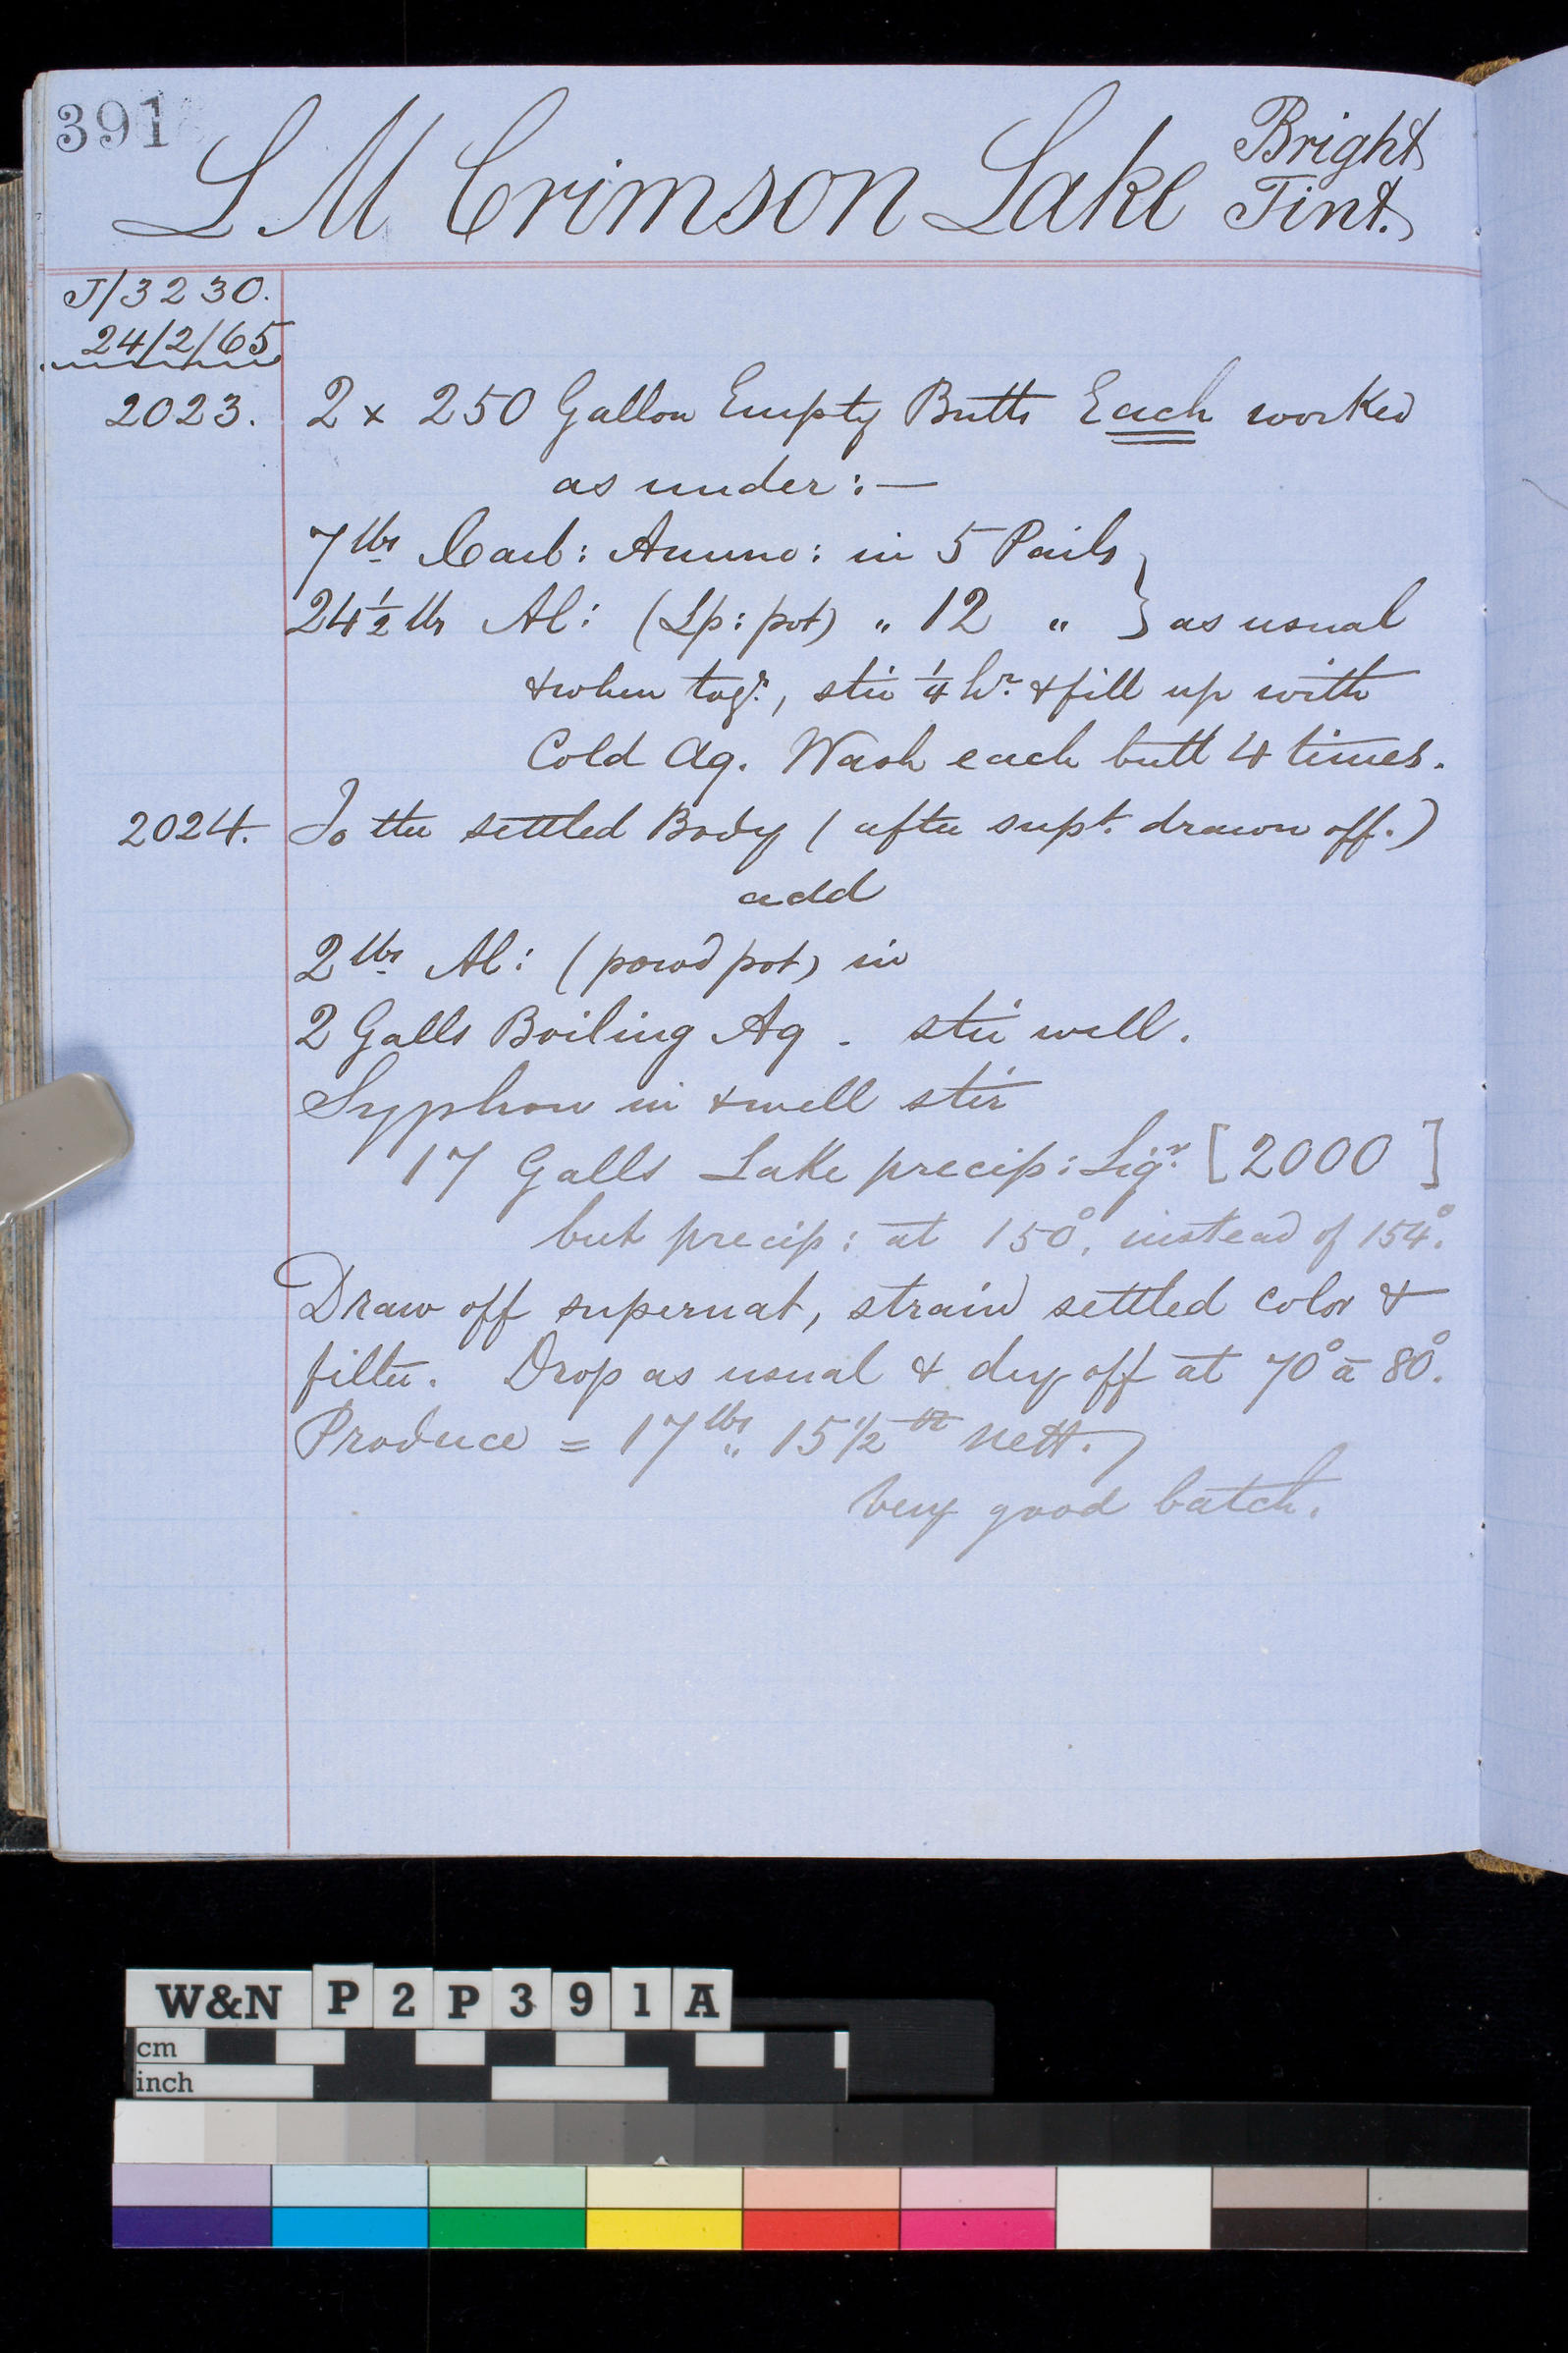 391
L M Crimson Lake Bright Tint.
J/3230.
24/2/65
2023. 2 x 250 Gallon Empty Butts Each worked
as under :—
7 lbs Carb: Ammo: in 5 Pails
24 1/2 lbs Al: (Lp: pot) " 12 " } as usual
& when togr., stir 1/4 hr. & fill up with
Cold Aq. Wash each butt 4 times.
2024. To the settled Body (after supt. drawn off.)
add
2 lbs Al: (powd pot) in
2 Galls Boiling Aq. stir well.
Syphon in & well stir
17 Galls Lake precip: Liqr. [2000]
but precip: at 150°, instead of 154°.
Draw off supernat, strain settled color &
filter. Drop as usual & dry off at 70° a 80°.
Produce = 17 lbs 15 1/2 oz nett.
Very good batch.
W&N P2P391A
cm
inch